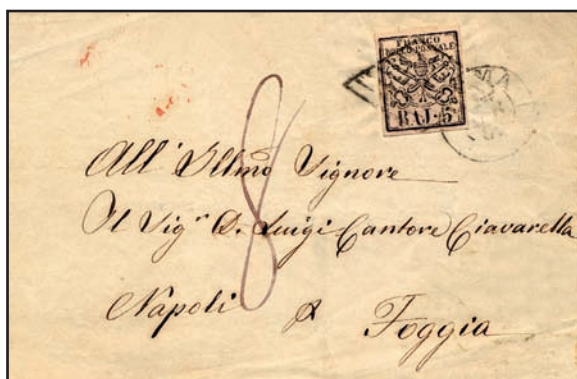 FRANCO
BOLLO POSTALE
BAJ. 5
8
All' Illmo Signore
Il Sigr D. Luigi Cantore Ciavarella
Napoli p Foggia